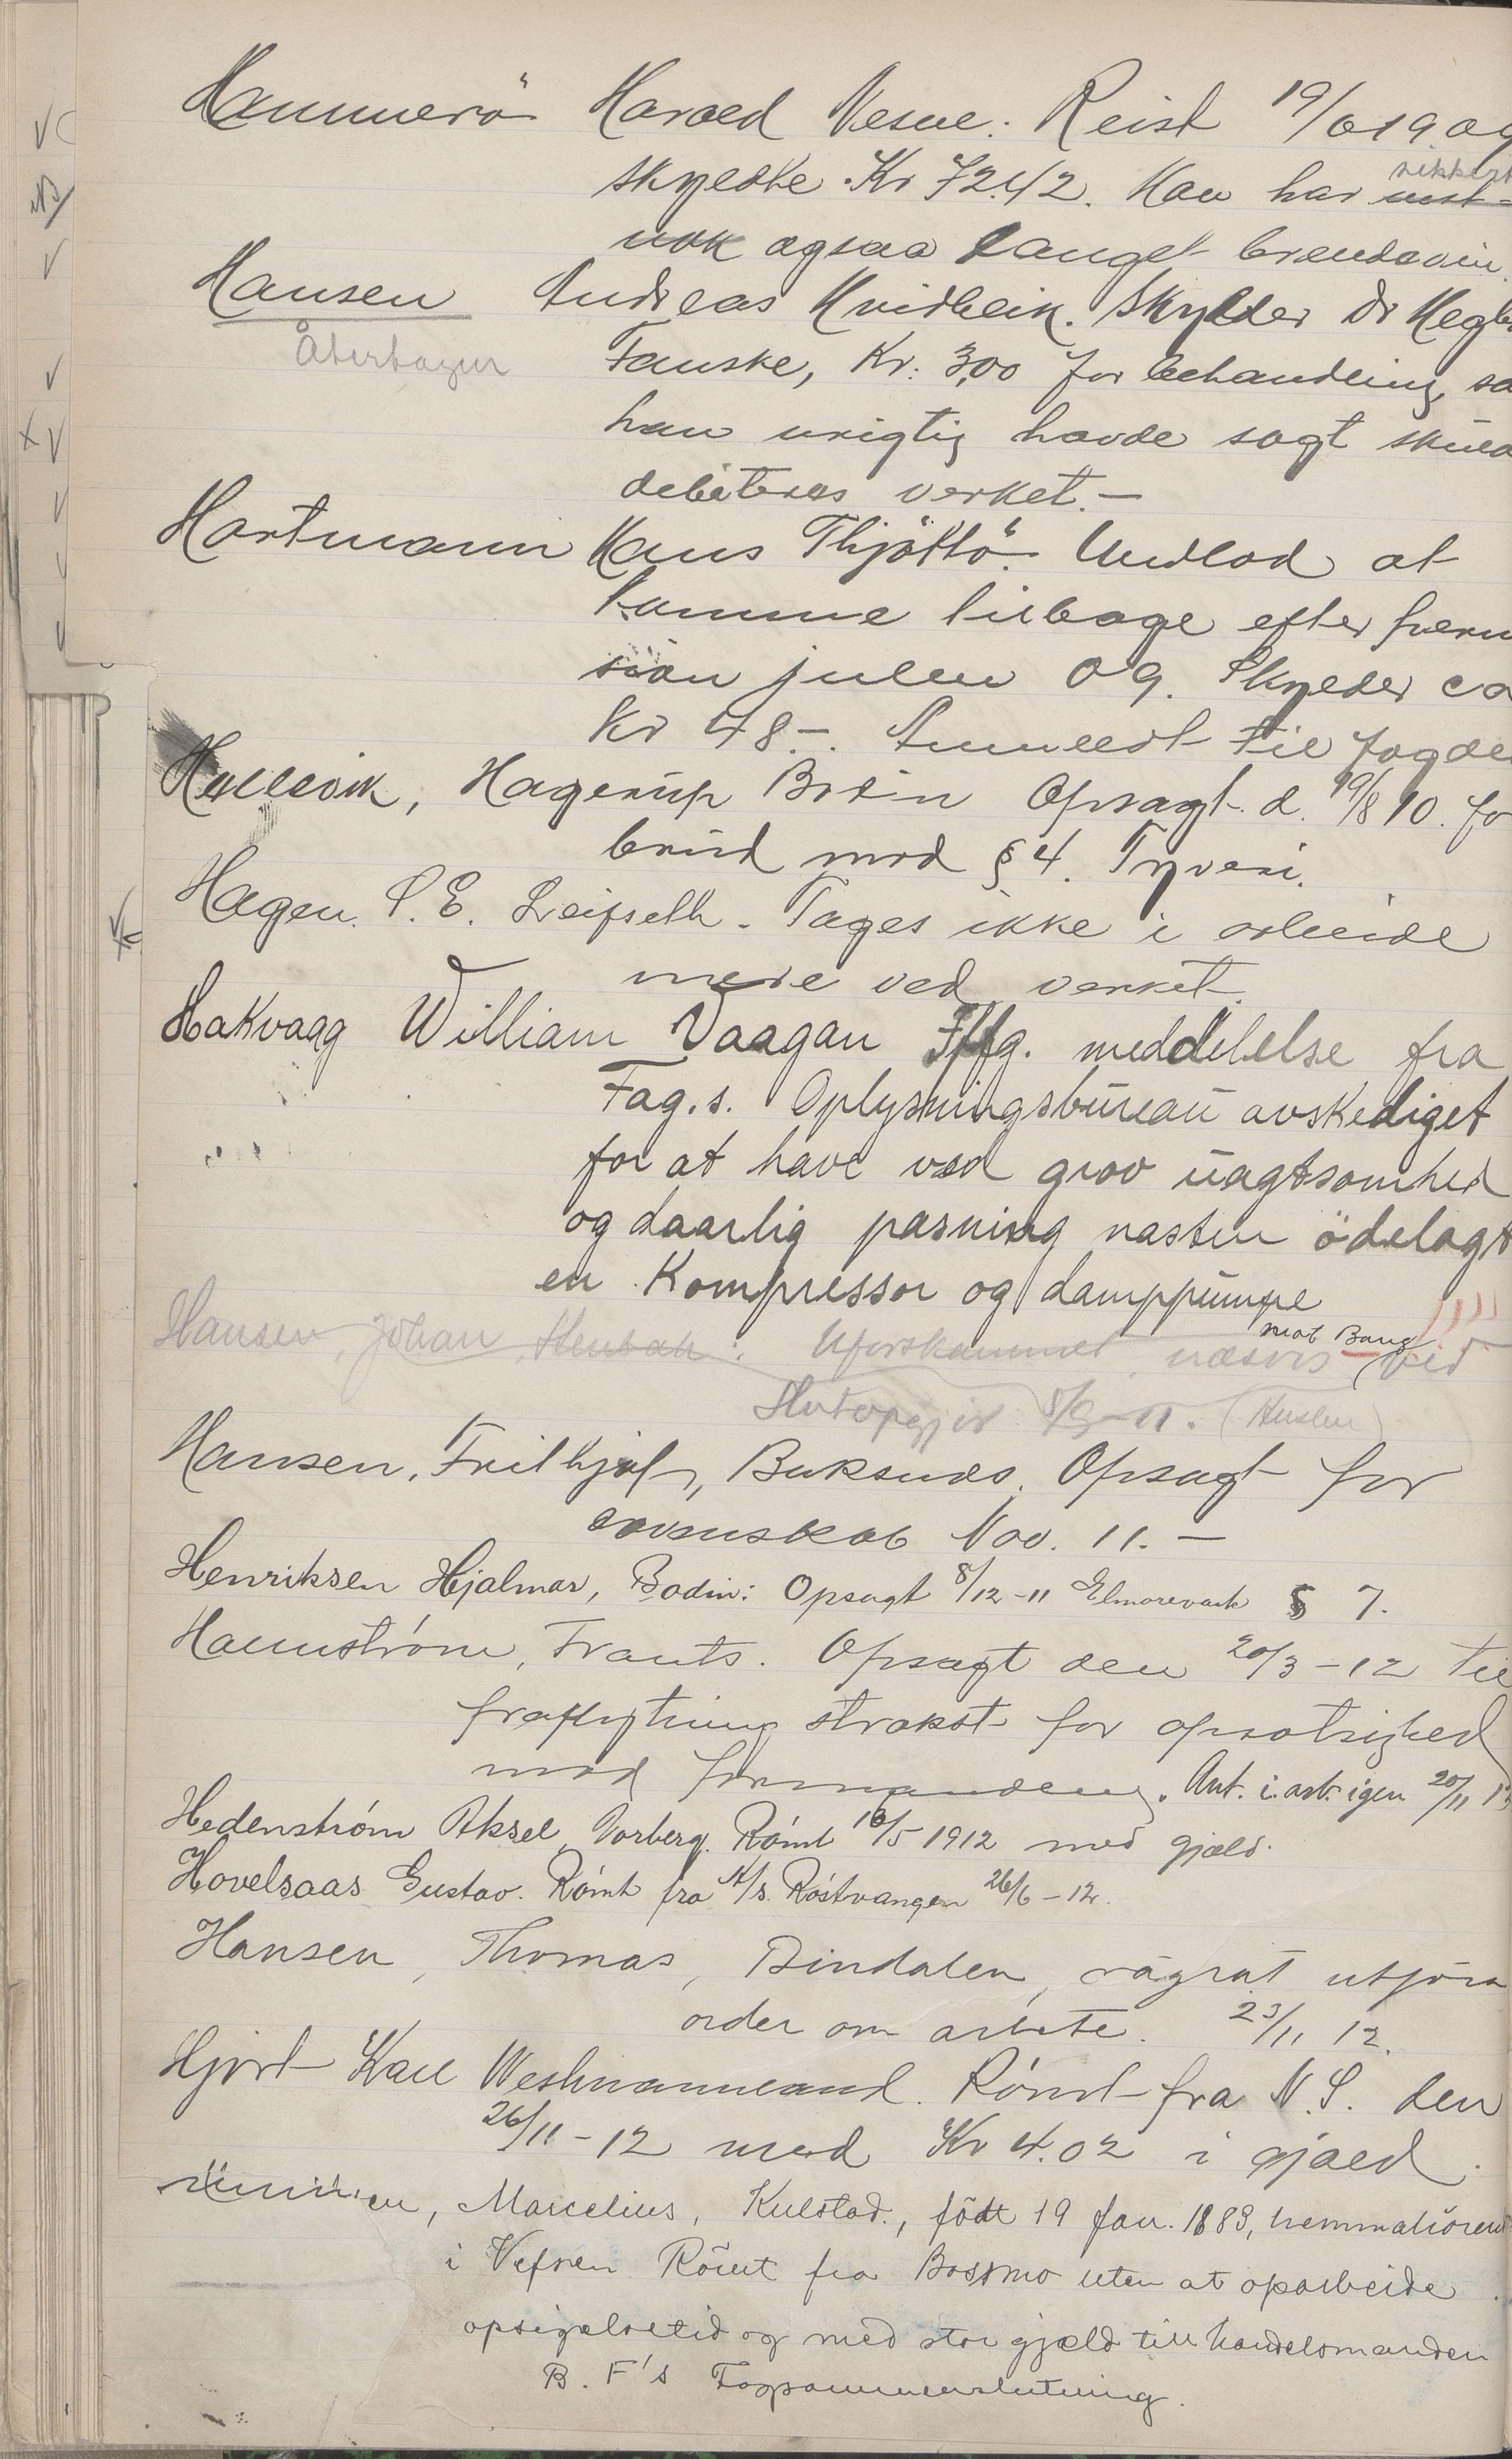 Hammerö Harald Vesne. Reist 19/6 19 og
sikkert
skyldte Kr 72.42. Han har
nok ogsaa langet brendevin.
Hansen Andreas Kvidbeik. Skylder Dr Hegb
Återtagen Fauske, Kr. 3,00 for behandling, so
han urigtig havde sagt skuld
debiteres verket. —
Hartmann Hans Thjöttö. Undlod at
komme tilbage efter frem
julen 09. Skylder ca
Kr 48.-. Anmeldt til fogde
Hallsvik, Hagerup Bodin Opsagt d. 19/8 10. fo
brud mod § 4. Tyveri.
Hagen. P.E. Leifseth. Tages ikke i arbeide
mere ved verket.
Hakvaag William Vaagan Iflg. meddelelse fra
Fag.s. Oplysningsbureau avskediget
for at have ved grov uagtsomhed
og daarlig pasning næsten ödelagt
en Kompressor og damppumpe
mot Bang
Hansen, Johan, : Uforskammet næsvis ved
8/9-11.
Hansen, Frithjof, Buksnes. Opsagt for
Nov. 11. —
Henriksen Hjalmar, Bodin: Opsagt 8/12-11 § 7.
Hammström, Frants. Opsagt den 20/3-12 til
fraflytning strakst for opsætsighed
mod formanden. Ant. i. arb. igen 20/11 1
Hedenström Aksel Varberg. Römt 10/5 1912 med gjæld.
Hovelsaas Gustav. Römt fra A/s. Röstvangen 26/6-12.
Hansen, Thomas, Bindalen, vägrat utföra
order om arbete. 23/11 12.
Hjort Karl Westmannland. Römt fra N.S. den
26/11-12 med Kr 4.02 i gjæld.
Marcelius, Kulstad., födt 19 Jan. 1883, hemmahörend
i Vefsen Römt fra Bossmo uten at oparbeide
opsigelsetid og med stor gjæld till handelsmanden
B. F's Fagsammenslutning.